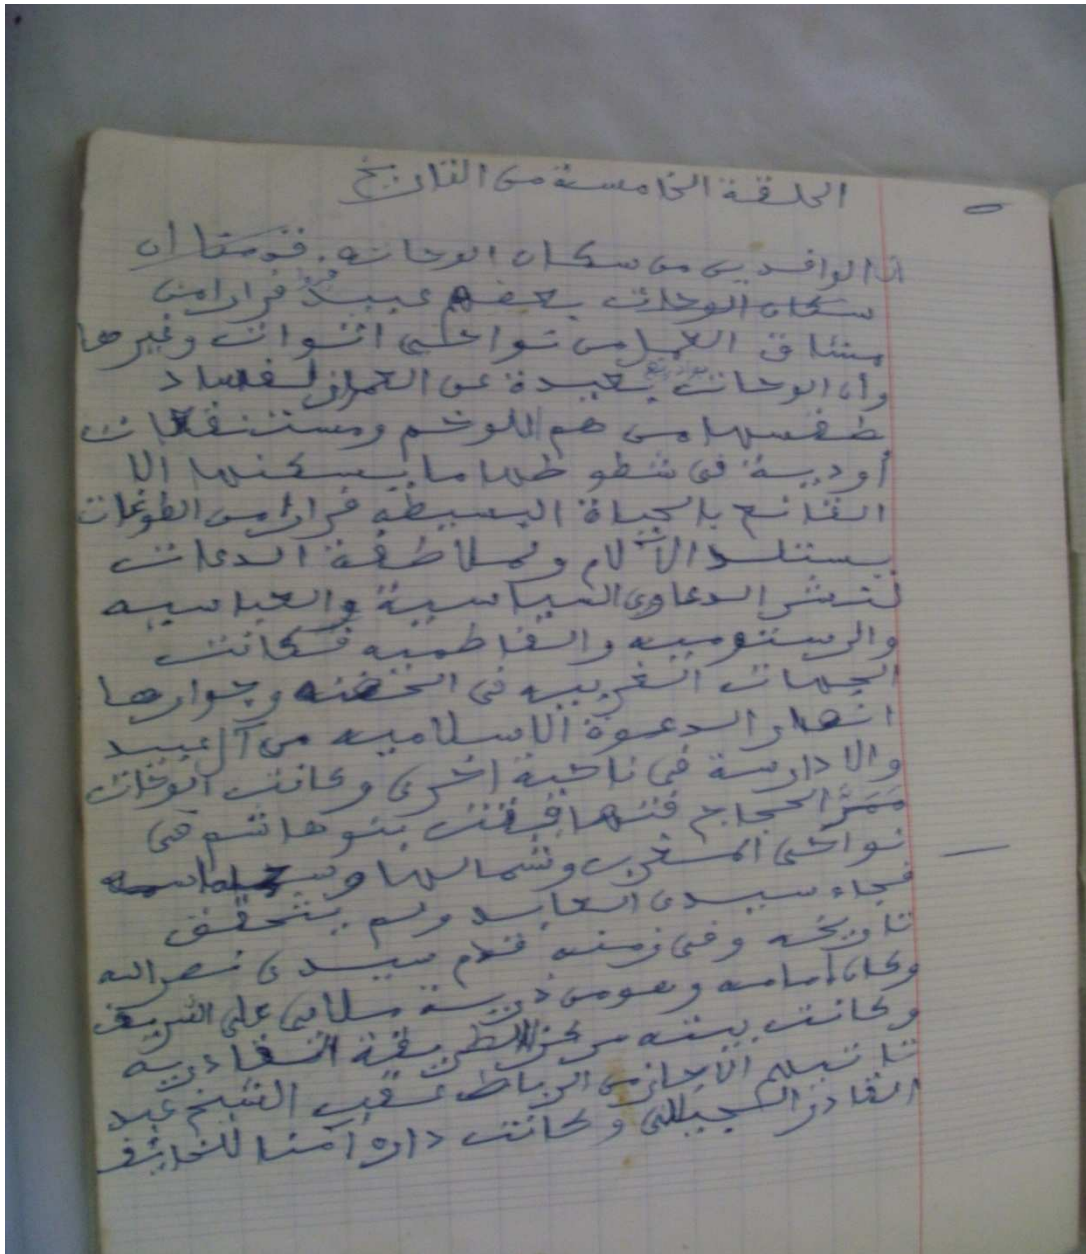 الحلقة الخامسة من التاريخ
ان الوافدين من سكان الوحات. قدمنا ان
سكان الوحات بعضهم عبيد فرارا من
مشاق العمل من نواحى اتوات وغيرها
وأن الوحات بعيدة عن العمران لفساد
طقسها من هم اللوخم ومستنقعات
أودية فى شطوطها ما يسكنها الا
القانع بالحياة البسيطة فرارا من
الآلام وملاطفة الدعات
لنشر الدعاوى السياسية والعباسيه
والرستوميه والفاطميه فكانت
الجهات الغربيه فى وجوارها
انصار الدعوة الاسلاميه من آل عبيد
والادارسة فى ناحية اخرى وكانت الوحات
مَمَرَّ الحجاج بنو هاشم فى
نواحى المغرب وشمالها
فجاء سيدى العابد ولم يتحقق
تاريخه وفى زمنه قدم سيدى نصر الله
وكان أمامه وهو من ذرية مولاى على الشريف
وكانت بيته مركز الطريقة القادريه
تأتيهم من الرباط عقب الشيخ عبد
القادر الجيلالى وكانت داره آمنا للخائف